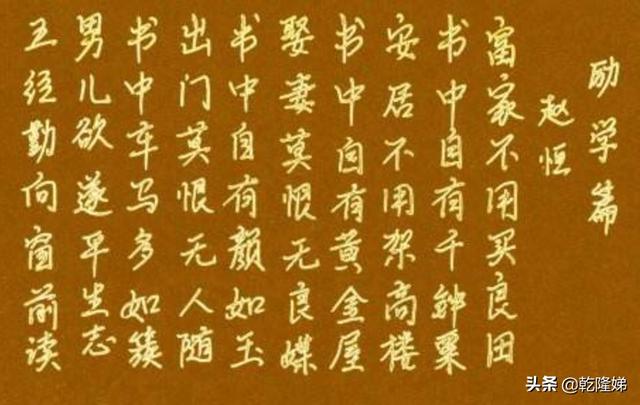 励学篇
赵恒
富家不用买良田
书中自有千钟粟
安居不用架高楼
书中自有黄金屋
娶妻莫恨无良媒
书中自有颜如玉
出门莫恨无人随
书中车马多如簇
男儿欲遂平生志
五经勤向窗前读
头条 @乾隆娣